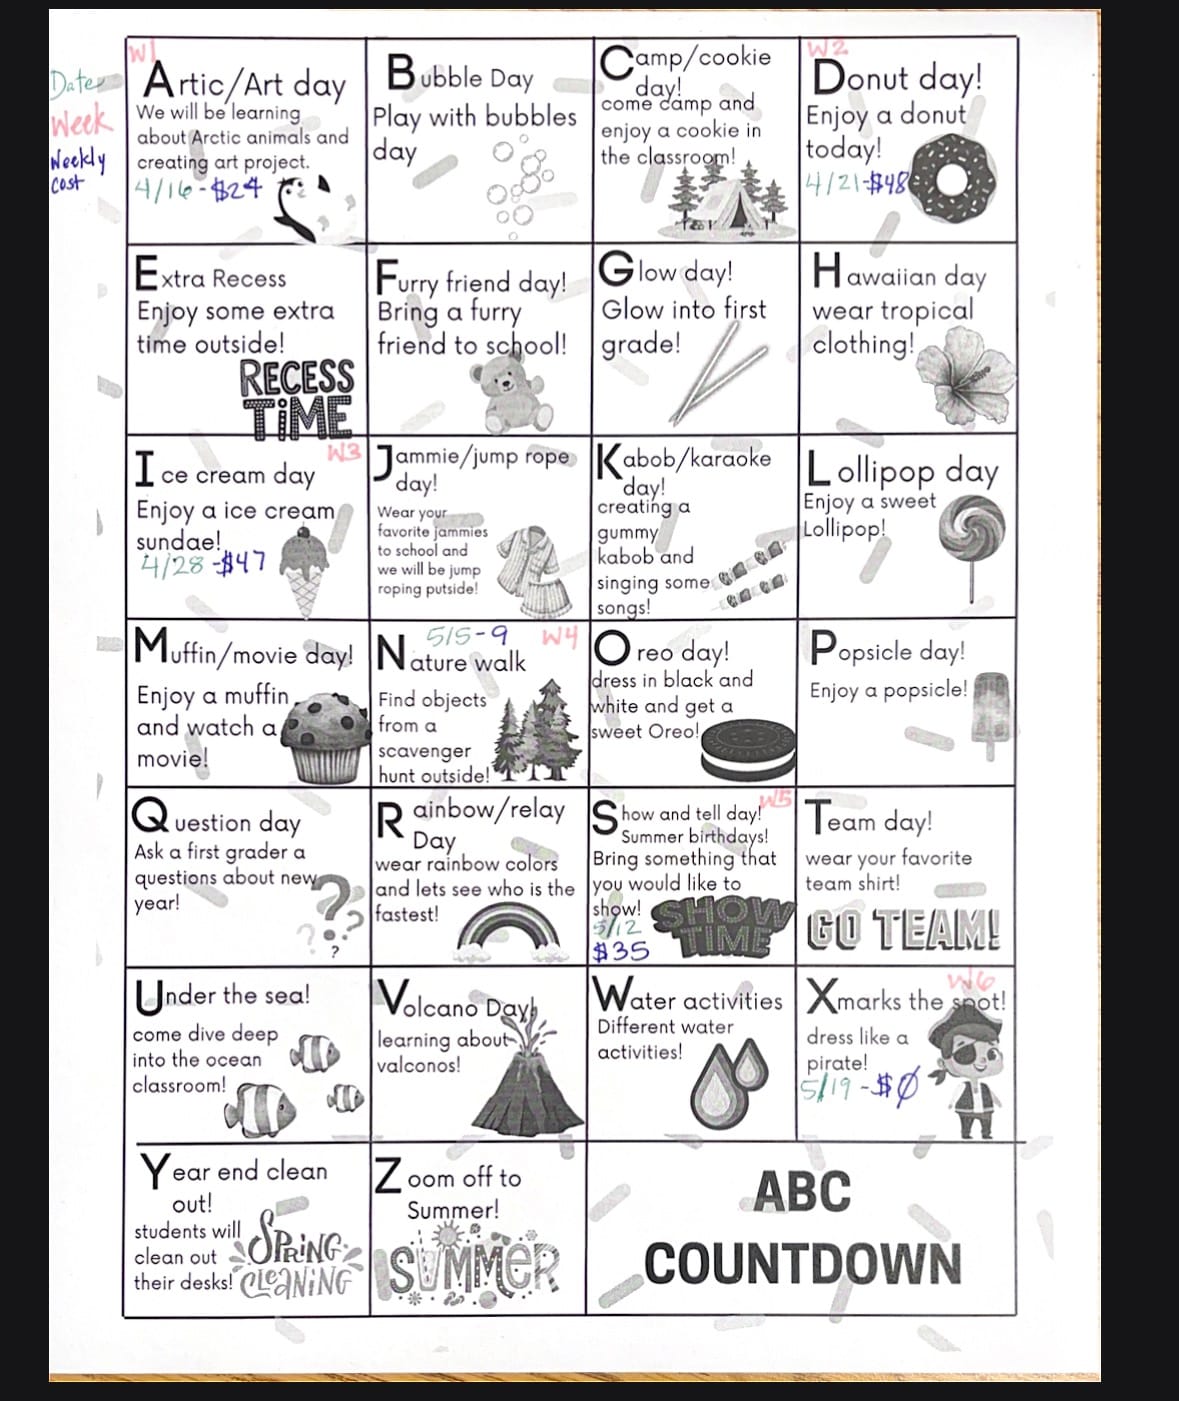 Date
Week
Weekly
Cost
W1
Artic/Art day
We will be learning
about Arctic animals and
creating art project.
4/16-$24
Bubble Day
Play with bubbles
day
Camp/cookie
day!
come camp and
enjoy a cookie in
the classroom!
W2
Donut day!
Enjoy a donut
today!
4/21-$48
Extra Recess
Enjoy some extra
time outside!
RECESS
TiME
Furry friend day!
Bring a furry
friend to school!
Glow day!
Glow into first
grade!
Hawaiian day
wear tropical
clothing!
W3
Ice cream day
Enjoy a ice cream
sundae!
4/28-$47
Jammie/jump rope
day!
Wear your
favorite jammies
to school and
we will be jump
roping putside!
Kabob/karaoke
day!
creating a
gummy
kabob and
singing some
songs!
Lollipop day
Enjoy a sweet
Lollipop!
Muffin/movie day!
Enjoy a muffin
and watch a
movie!
5/5-9 W4
Nature walk
Find objects
from a
scavenger
hunt outside!
Oreo day!
dress in black and
white and get a
sweet Oreo!
Popsicle day!
Enjoy a popsicle!
Question day
Ask a first grader a
questions about new
year!
Rainbow/relay
Day
wear rainbow colors
and lets see who is the
fastest!
W5
Show and tell day!
Summer birthdays!
Bring something that
you would like to
show!
5/12
$35
SHOW
TIME
Team day!
wear your favorite
team shirt!
GO TEAM!
Under the sea!
come dive deep
into the ocean
classroom!
Volcano Day!
learning about
valconos!
Water activities
Different water
activities!
W6
Xmarks the spot!
dress like a
pirate!
5/19-$0
Year end clean
out!
students will
clean out
their desks!
SPRiNG
CLeaNiNG
Zoom off to
Summer!
SUMMeR
ABC
COUNTDOWN